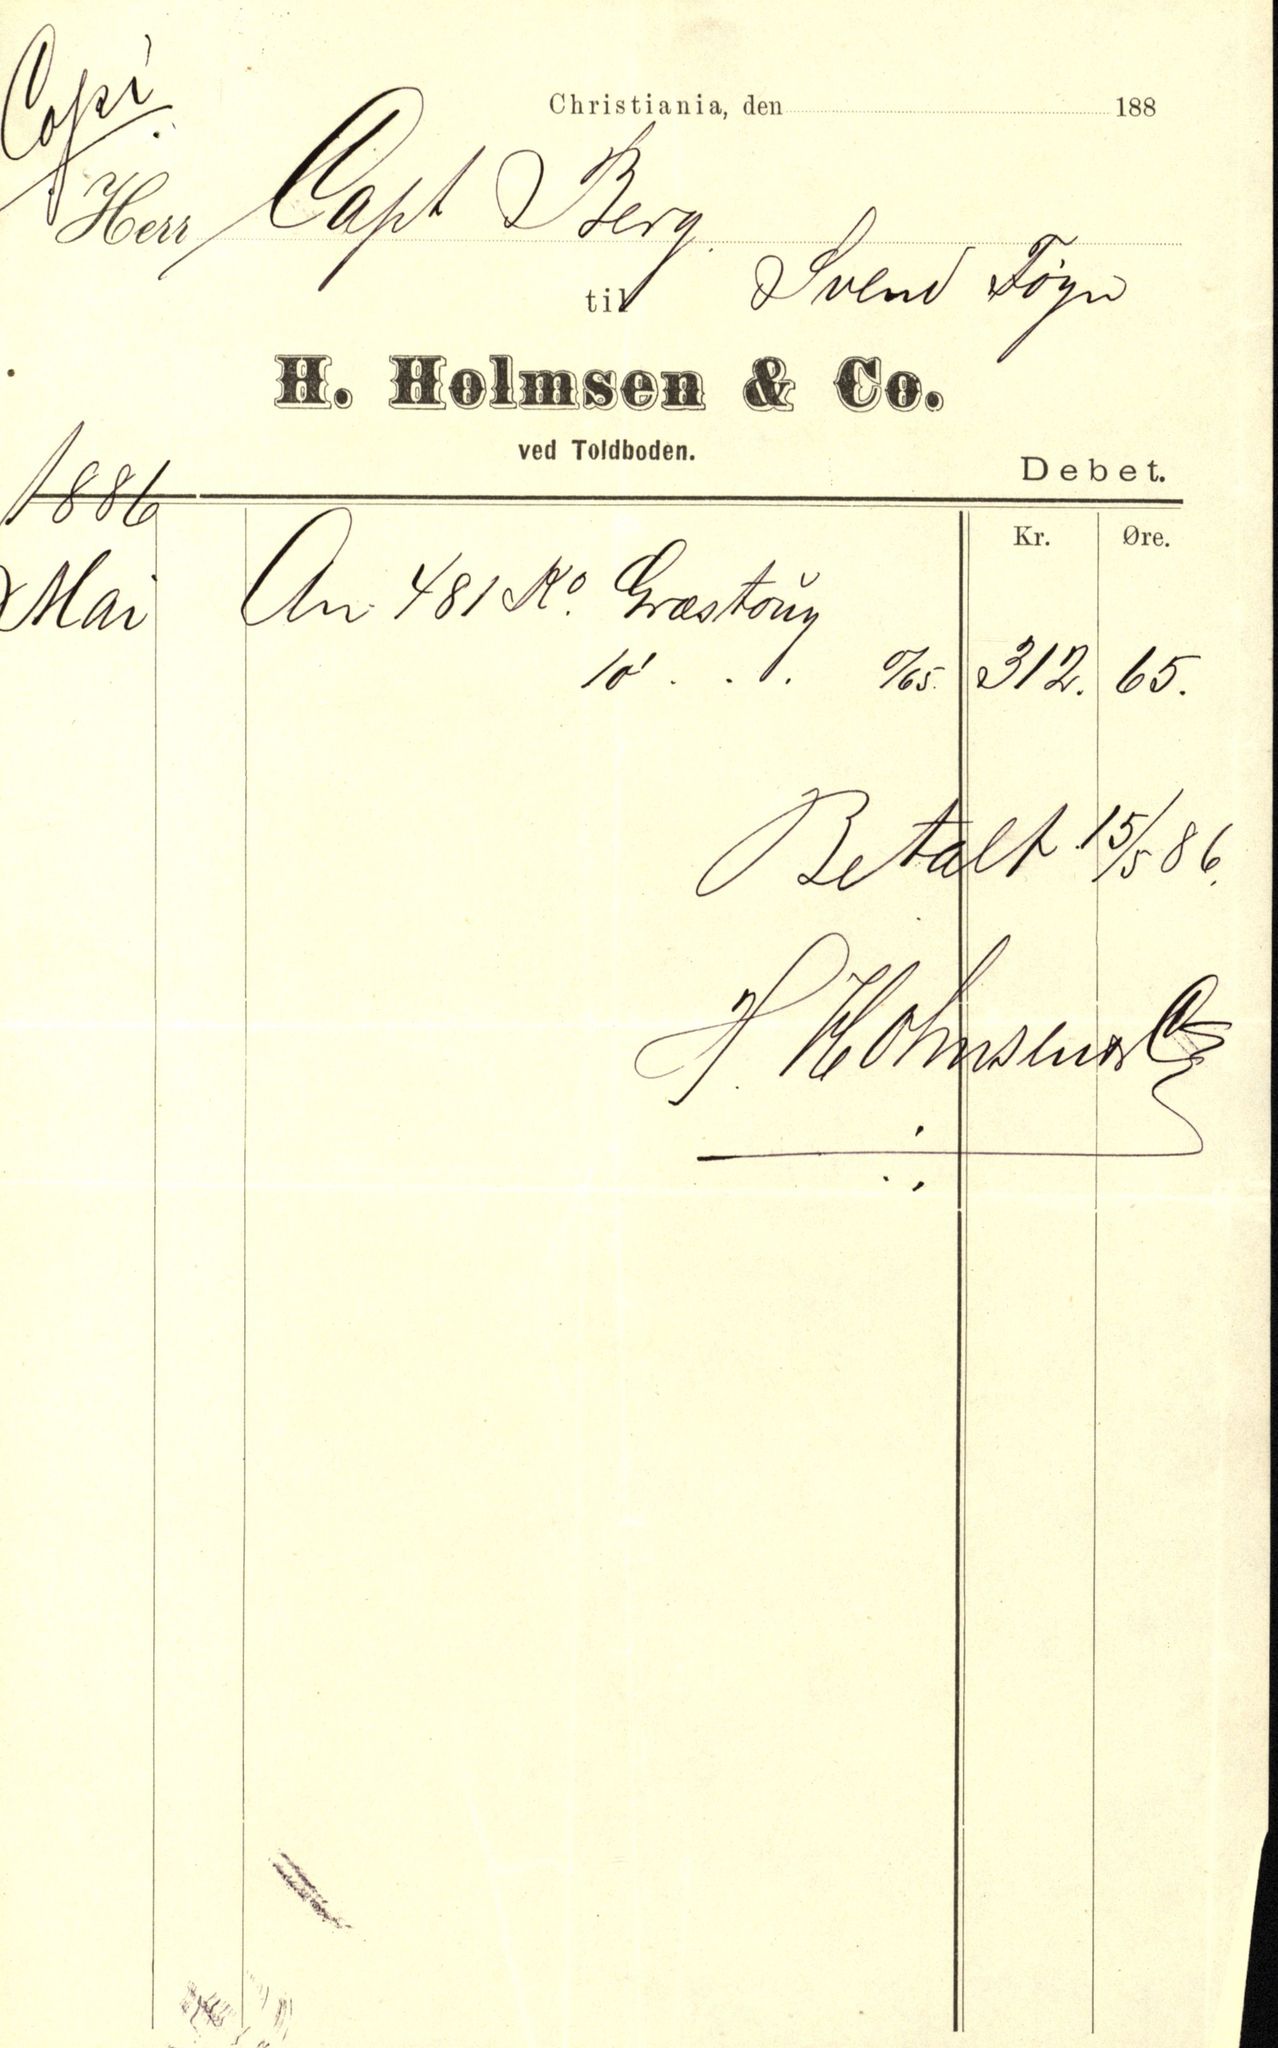 Copi
Christiania, den 188
Herr Capt Berg
til Svend Føyn
H. Holmsen & Co.
ved Toldboden.
Debet.
1886
Kr. Øre.
Mai An 481 Ko. Græstoug
10' . . . % 65. 312. 65.
Betalt 15/5 86.
H. Holmsen & Co